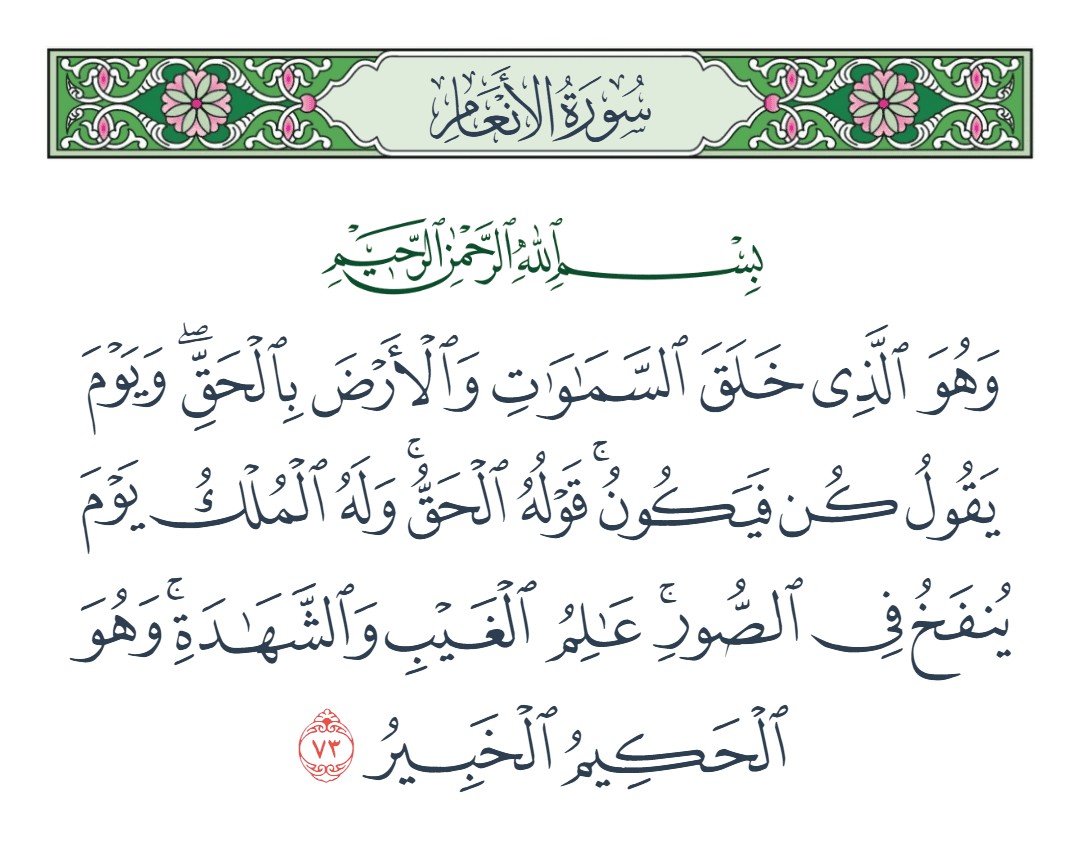 سُورَةُ الأَنْعَامِ
بِسْمِ ٱللَّهِ ٱلرَّحْمَٰنِ ٱلرَّحِيمِ
وَهُوَ ٱلَّذِى خَلَقَ ٱلسَّمَٰوَٰتِ وَٱلْأَرْضَ بِٱلْحَقِّ ۖ وَيَوْمَ
يَقُولُ كُن فَيَكُونُ ۚ قَوْلُهُ ٱلْحَقُّ ۚ وَلَهُ ٱلْمُلْكُ يَوْمَ
يُنفَخُ فِى ٱلصُّورِ ۚ عَٰلِمُ ٱلْغَيْبِ وَٱلشَّهَٰدَةِ ۚ وَهُوَ
ٱلْحَكِيمُ ٱلْخَبِيرُ ٧٣